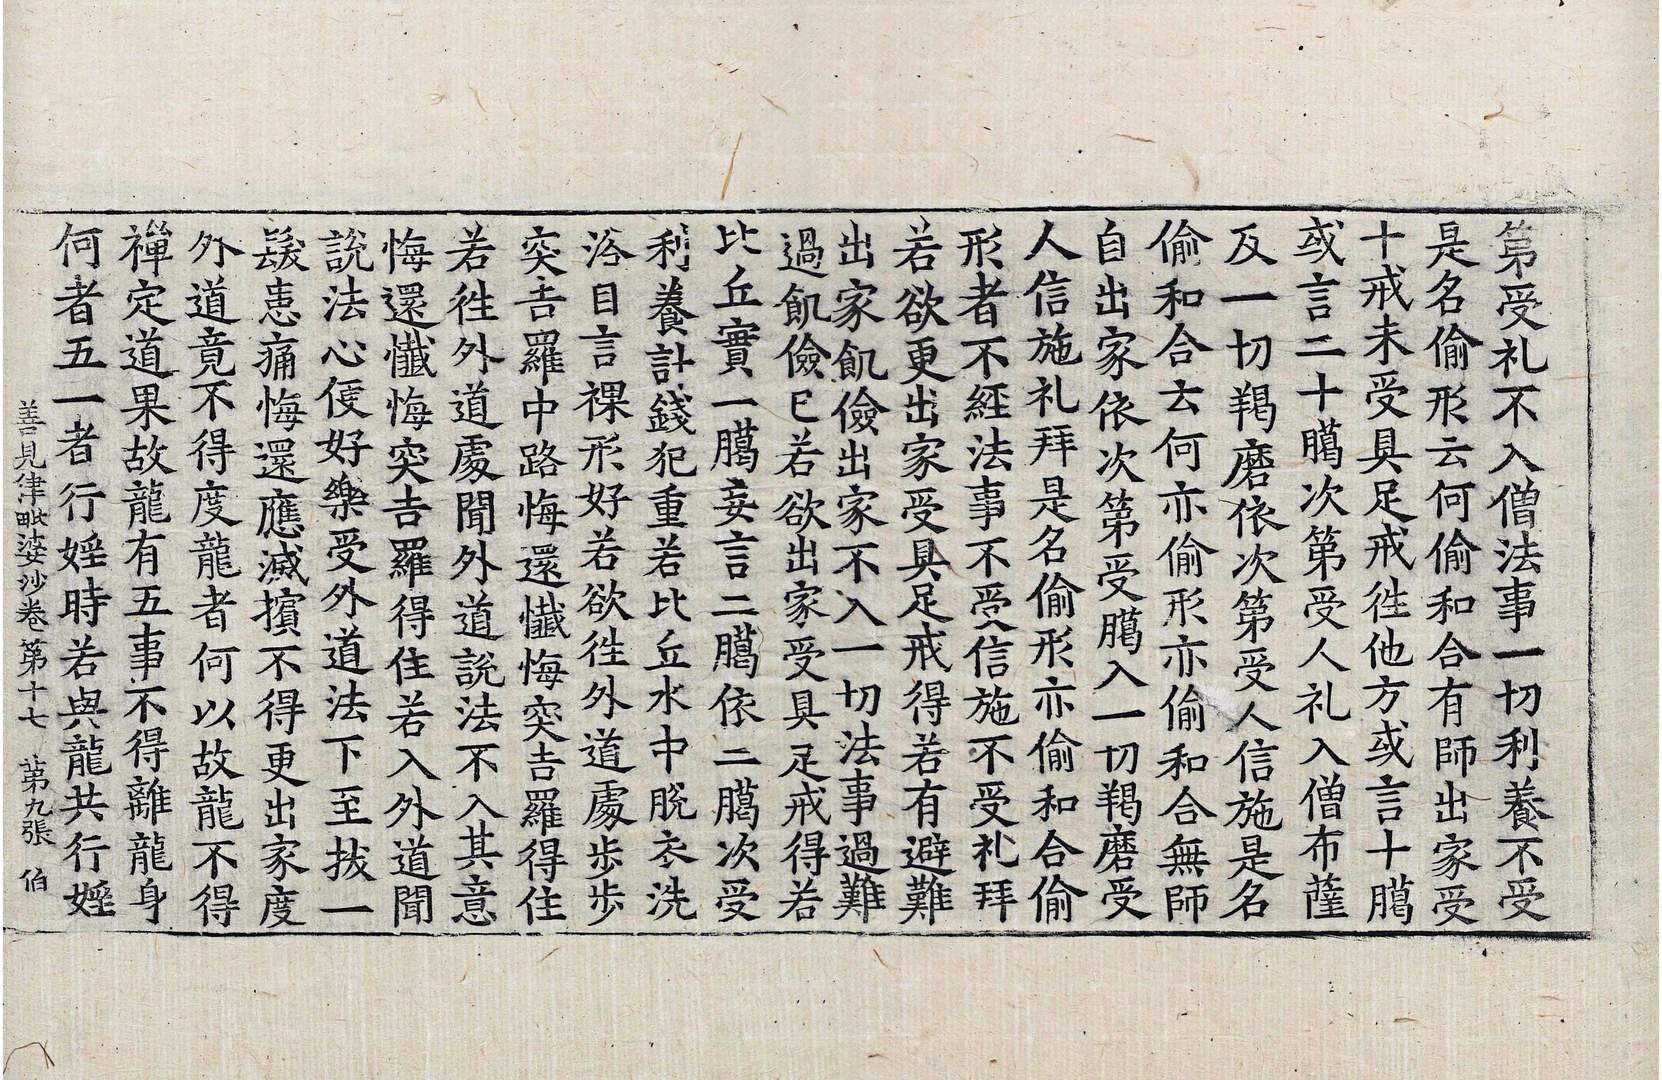 第受礼不入僧法事一切利養不受
是名偷形云何偷和合有師出家受
十戒未受具足戒徃他方或言十臈
或言二十臈次第受人礼入僧布薩
及一切羯磨依次第受人信施是名
偷和合云何亦偷形亦偷和合無師
自出家依次第受臈入一切羯磨受
人信施礼拜是名偷形亦偷和合偷
形者不經法事不受信施不受礼拜
若欲更出家受具足戒得若有避難
出家飢儉出家不入一切法事過難
過飢儉已若欲出家受具足戒得若
比丘實一臈妄言二臈依二臈次受
利養計錢犯重若比丘水中脫衣洗
浴自言裸形好若欲徃外道處步步
突吉羅中路悔還懺悔突吉羅得住
若徃外道處聞外道說法不入其意
悔還懺悔突吉羅得住若入外道聞
說法心便好樂受外道法下至拔一
髮恚痛悔還應滅擯不得更出家度
外道竟不得度龍者何以故龍不得
禪定道果故龍有五事不得離龍身
何者五一者行婬時若與龍共行婬
善見律毗婆沙卷第十七 第九張 伯